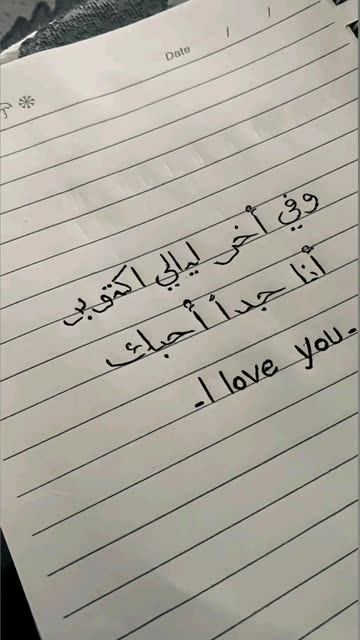 Date / /
وفي أخر ليالي اكتوبر
أنا جداً أحبك
-I love you-